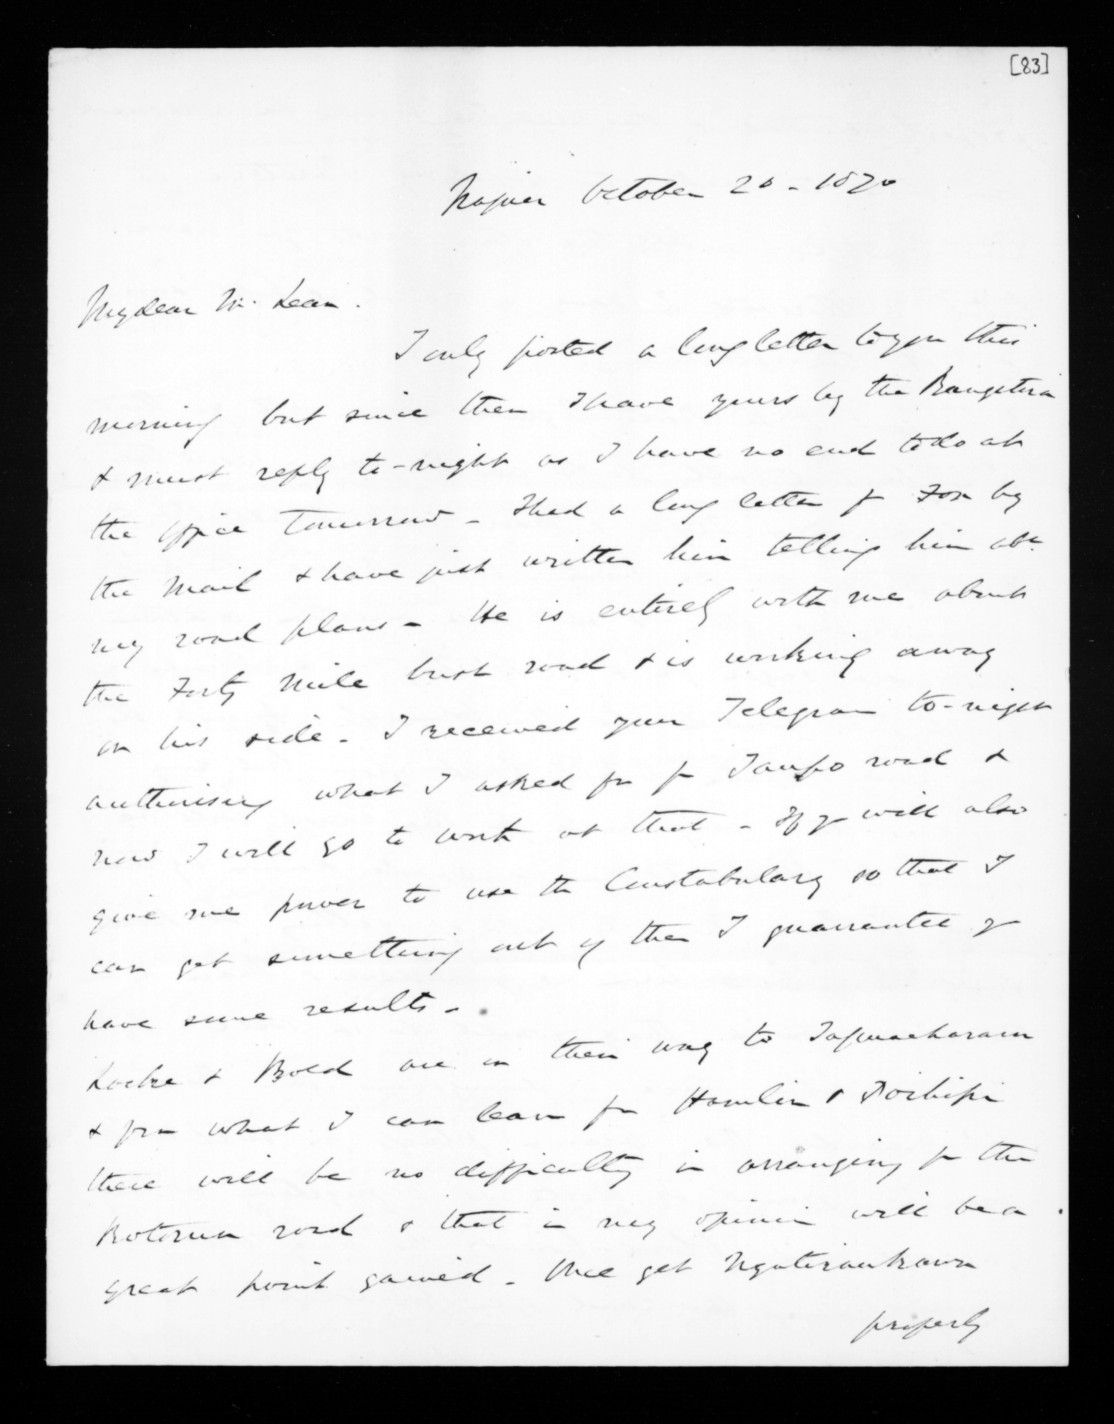 [83]
Napier October 20 - 1870
My dear Mr. Lean.
I only posted a long letter to you this
morning but since then I have yours by the Rangatira
& must reply to-night as I have no end to do at
the office tomorrow - I had a long letter fr Fox by
the Mail & have just written him telling him abt
my road plans - He is entirely with me about
the Forty Mile bush road & is working away
on his side - I received your Telegram to-night
authorising what I asked for fr Taupo road &
now I will go to work at that - If yr will also
give me power to use the Constabulary so that I
can get something out of them I guarantee yr
have some results -
Locke & Bold are on their way to Tapuaeharam
& from what I can learn fr Hamlin & Poihipi
there will be no difficulty in arranging fr the
Rotorua road & that in my opinion will be a
great point gained - Once get Ngatiraukawa
properly